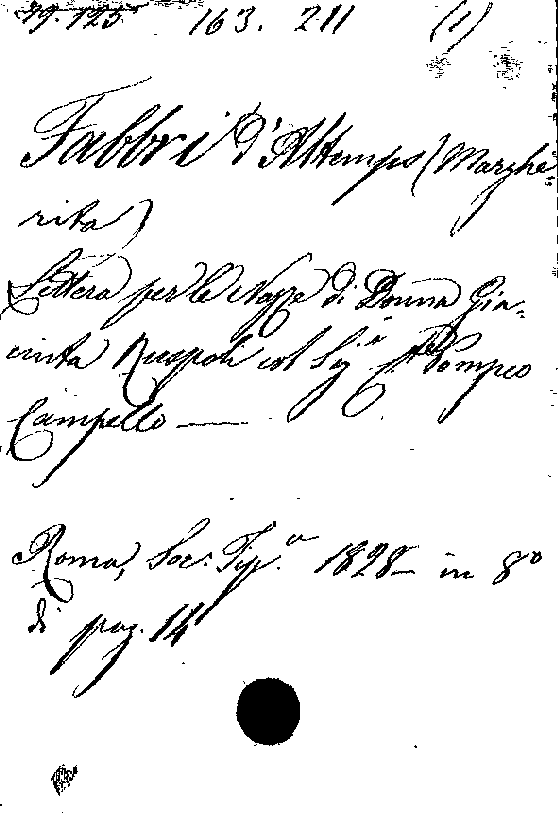 79.125 163. 211 (1)
Fabbri d'Altemps (Marghe
rita)
Lettera per le Nozze di Donna Gia-
cinta Ruspoli col Sig.r Cte Pompeo
Campello —
Roma, Soc: Tip.a 1828 — in 8º
di pag. 14